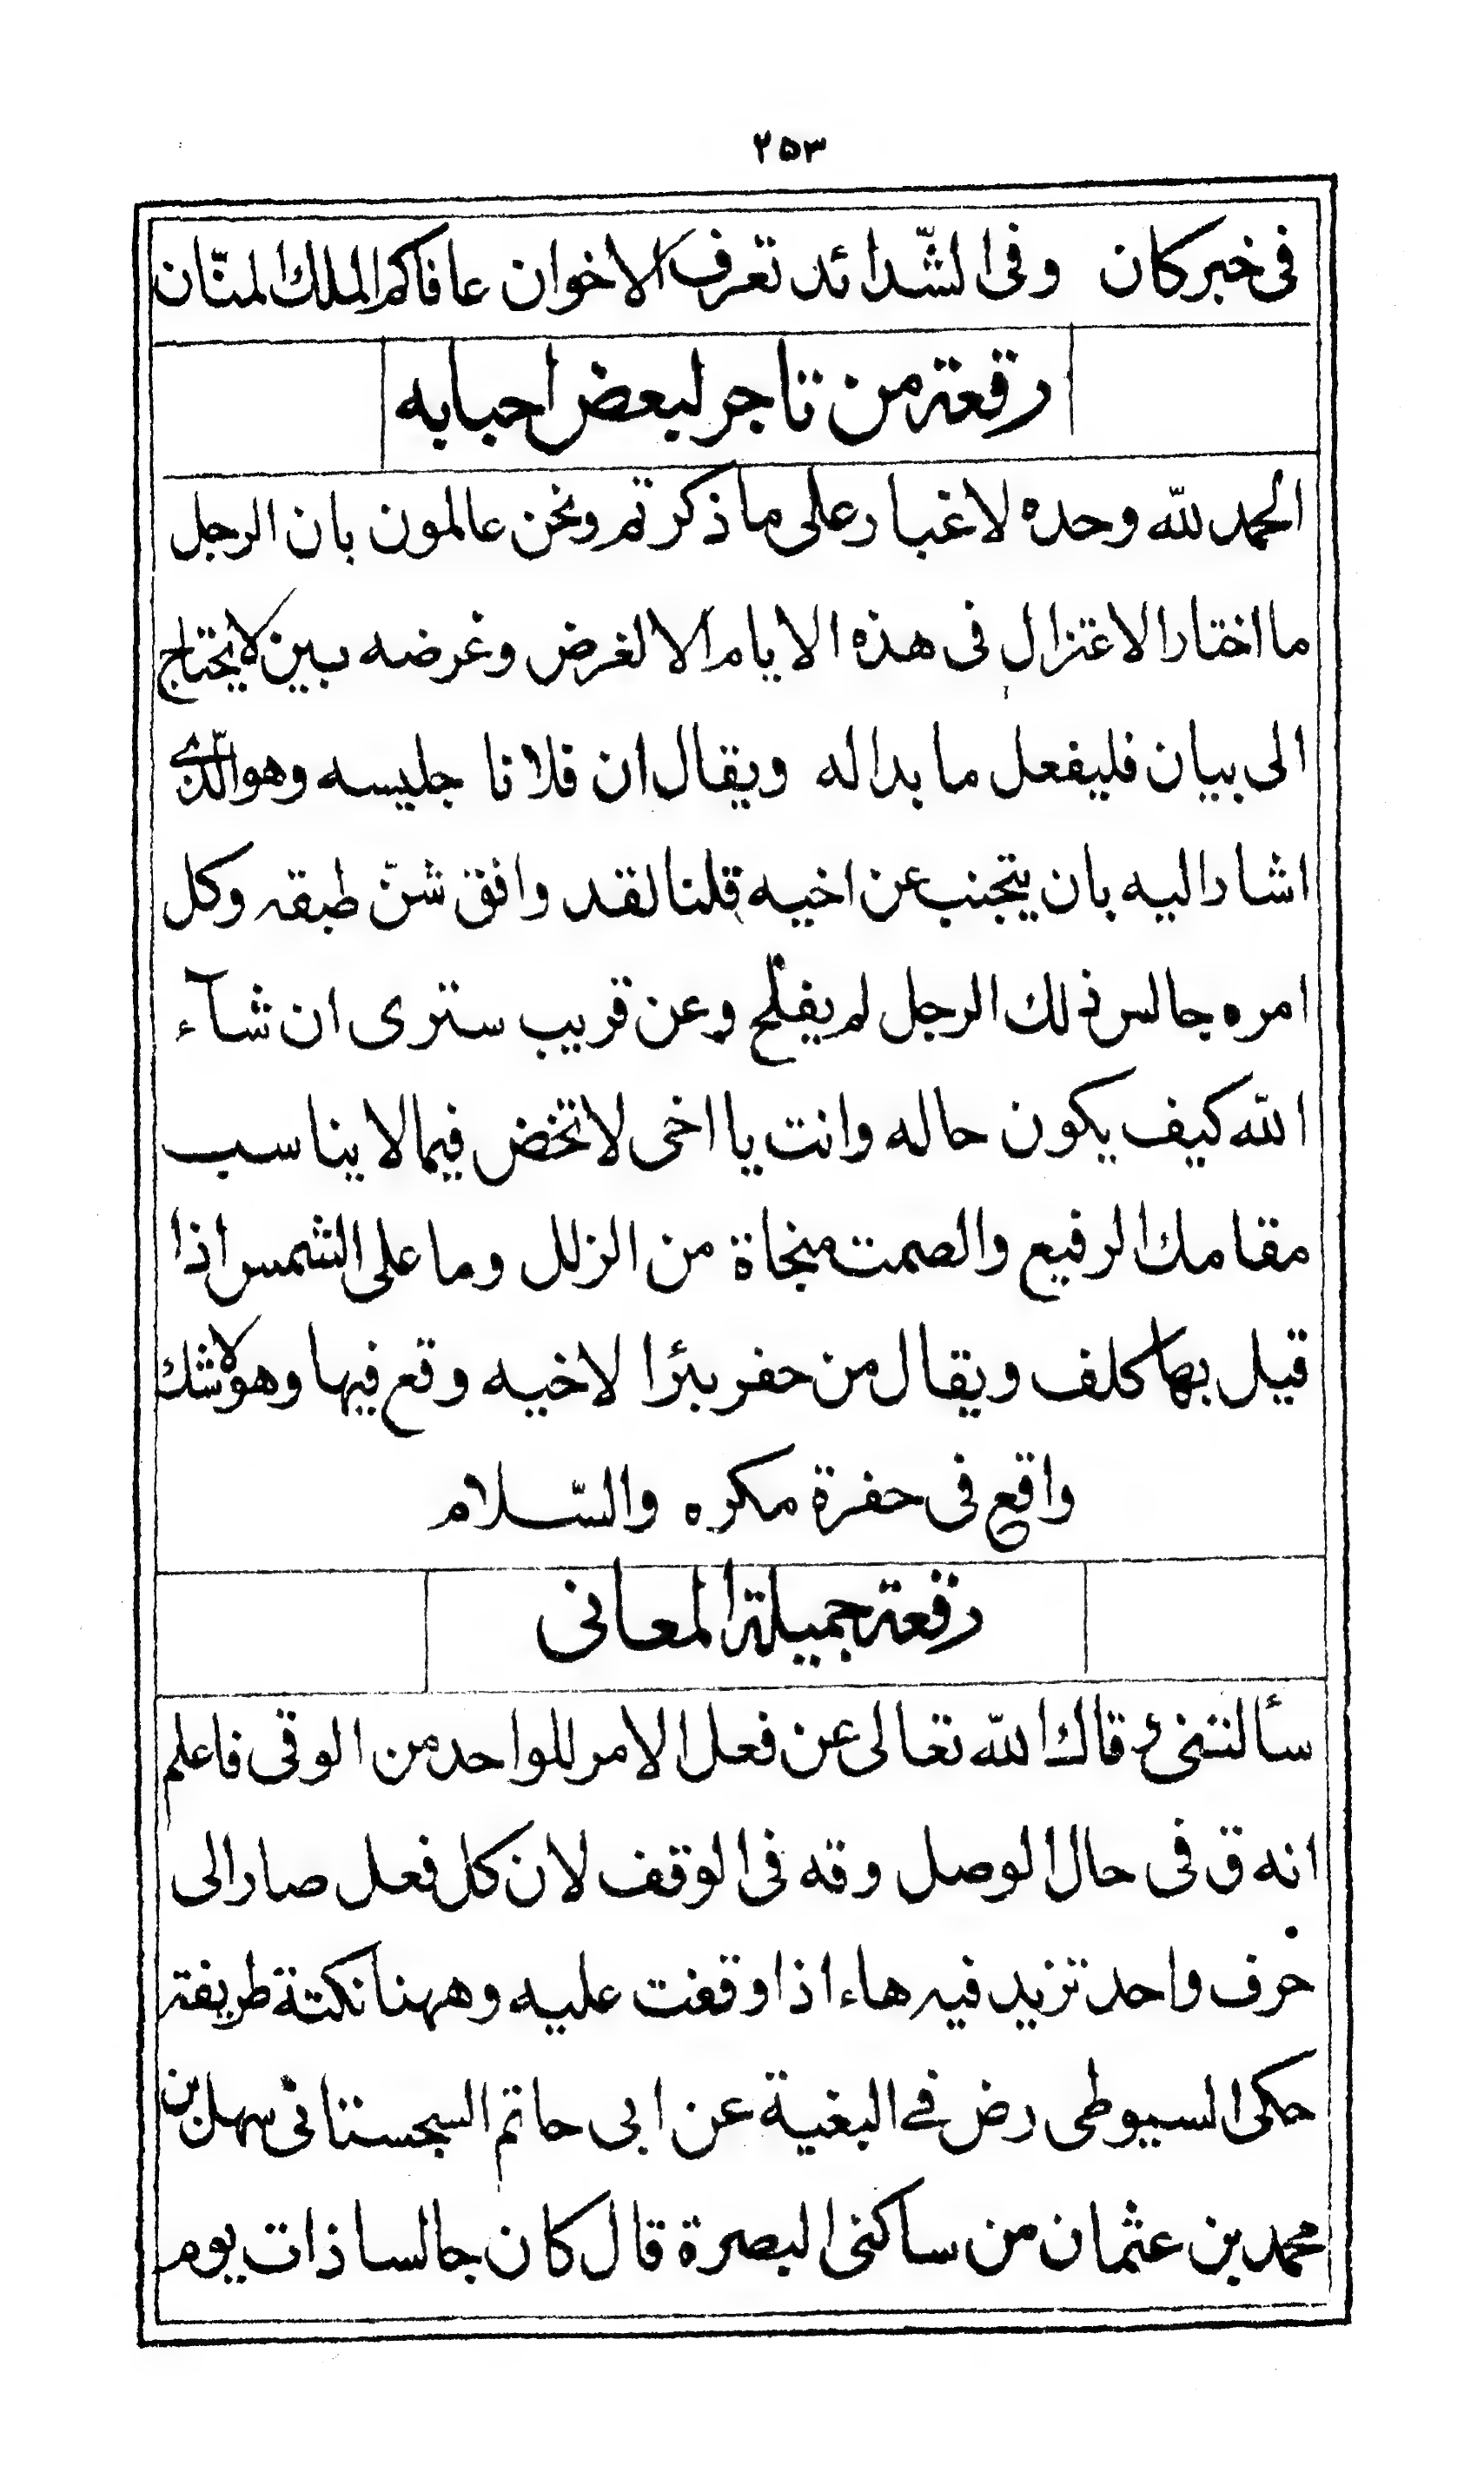 ٢٥٣
فى خبركان وفى الشّدائد تعرف الاخوان عافاكم الملك المنّان
رقعة من تاجر لبعض احبابه
الحمد للّه وحده لاغبار على ما ذكرتم ونحن عالمون بان الرجل
ما اختار الاعتزال فى هذه الايام الا لغرض وغرضه بين لا يحتاج
الى بيان فليفعل ما بداله ويقال ان فلانا جليسه وهو الّذى
اشار اليه بان يتجنب عن اخيه قلنا لقد وافق شنّ طبقه وكل
امره جالس ذلك الرجل لم يفلح وعن قريب سترى ان شآء
اللّه كيف يكون حاله وانت يا اخى لا تخض فيما لا يناسب
مقامك الرفيع والصمت منجاة من الزلل وما على الشمس اذا
قيل بها كلف ويقال من حفر بئرا لاخيه وقع فيها وهو لا شك
واقع فى حفرة مكره والسّلام
رقعة جميلة المعانى
سألتنى وقاك اللّه تعالى عن فعل الامر للواحد من الوقى فاعلم
انه ق فى حال الوصل وقه فى الوقف لان كل فعل صار الى
حرف واحد تزيد فيه هاء اذا وقفت عليه وههنا نكتة طريفة
حكى السيوطى رض فے البغية عن ابى حاتم السجستانى سهل بن
محمد بن عثمان من ساكنى البصرة قال كان جالسا ذات يوم